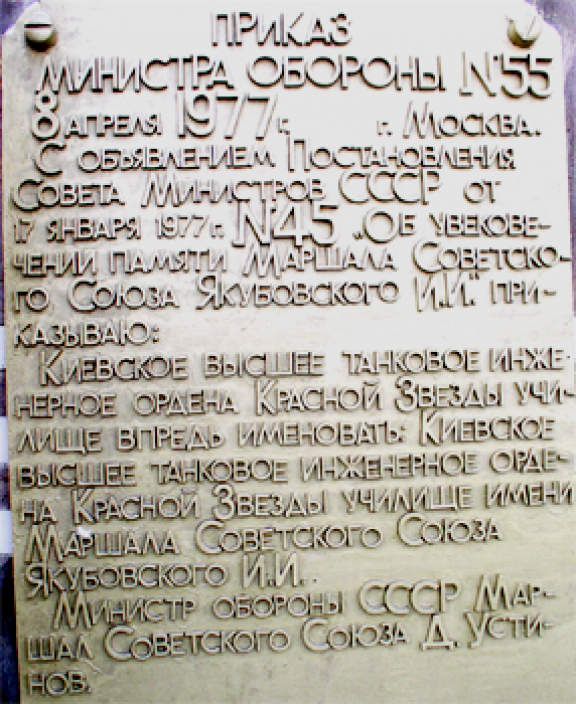 ПРИКАЗ
МИНИСТРА ОБОРОНЫ N55
8 АПРЕЛЯ 1977г. г. МОСКВА.
С ОБЪЯВЛЕНИЕМ ПОСТАНОВЛЕНИЯ
СОВЕТА МИНИСТРОВ СССР ОТ
17 ЯНВАРЯ 1977г. N45 „ОБ УВЕКОВЕ-
ЧЕНИИ ПАМЯТИ МАРШАЛА СОВЕТСКО-
ГО СОЮЗА ЯКУБОВСКОГО И.И." ПРИ-
КАЗЫВАЮ:
КИЕВСКОЕ ВЫСШЕЕ ТАНКОВОЕ ИНЖЕ-
НЕРНОЕ ОРДЕНА КРАСНОЙ ЗВЕЗДЫ УЧИ-
ЛИЩЕ ВПРЕДЬ ИМЕНОВАТЬ: КИЕВСКОЕ
ВЫСШЕЕ ТАНКОВОЕ ИНЖЕНЕРНОЕ ОРДЕ-
НА КРАСНОЙ ЗВЕЗДЫ УЧИЛИЩЕ ИМЕНИ
МАРШАЛА СОВЕТСКОГО СОЮЗА
ЯКУБОВСКОГО И.И.
МИНИСТР ОБОРОНЫ СССР МАР-
ШАЛ СОВЕТСКОГО СОЮЗА Д. УСТИ-
НОВ.